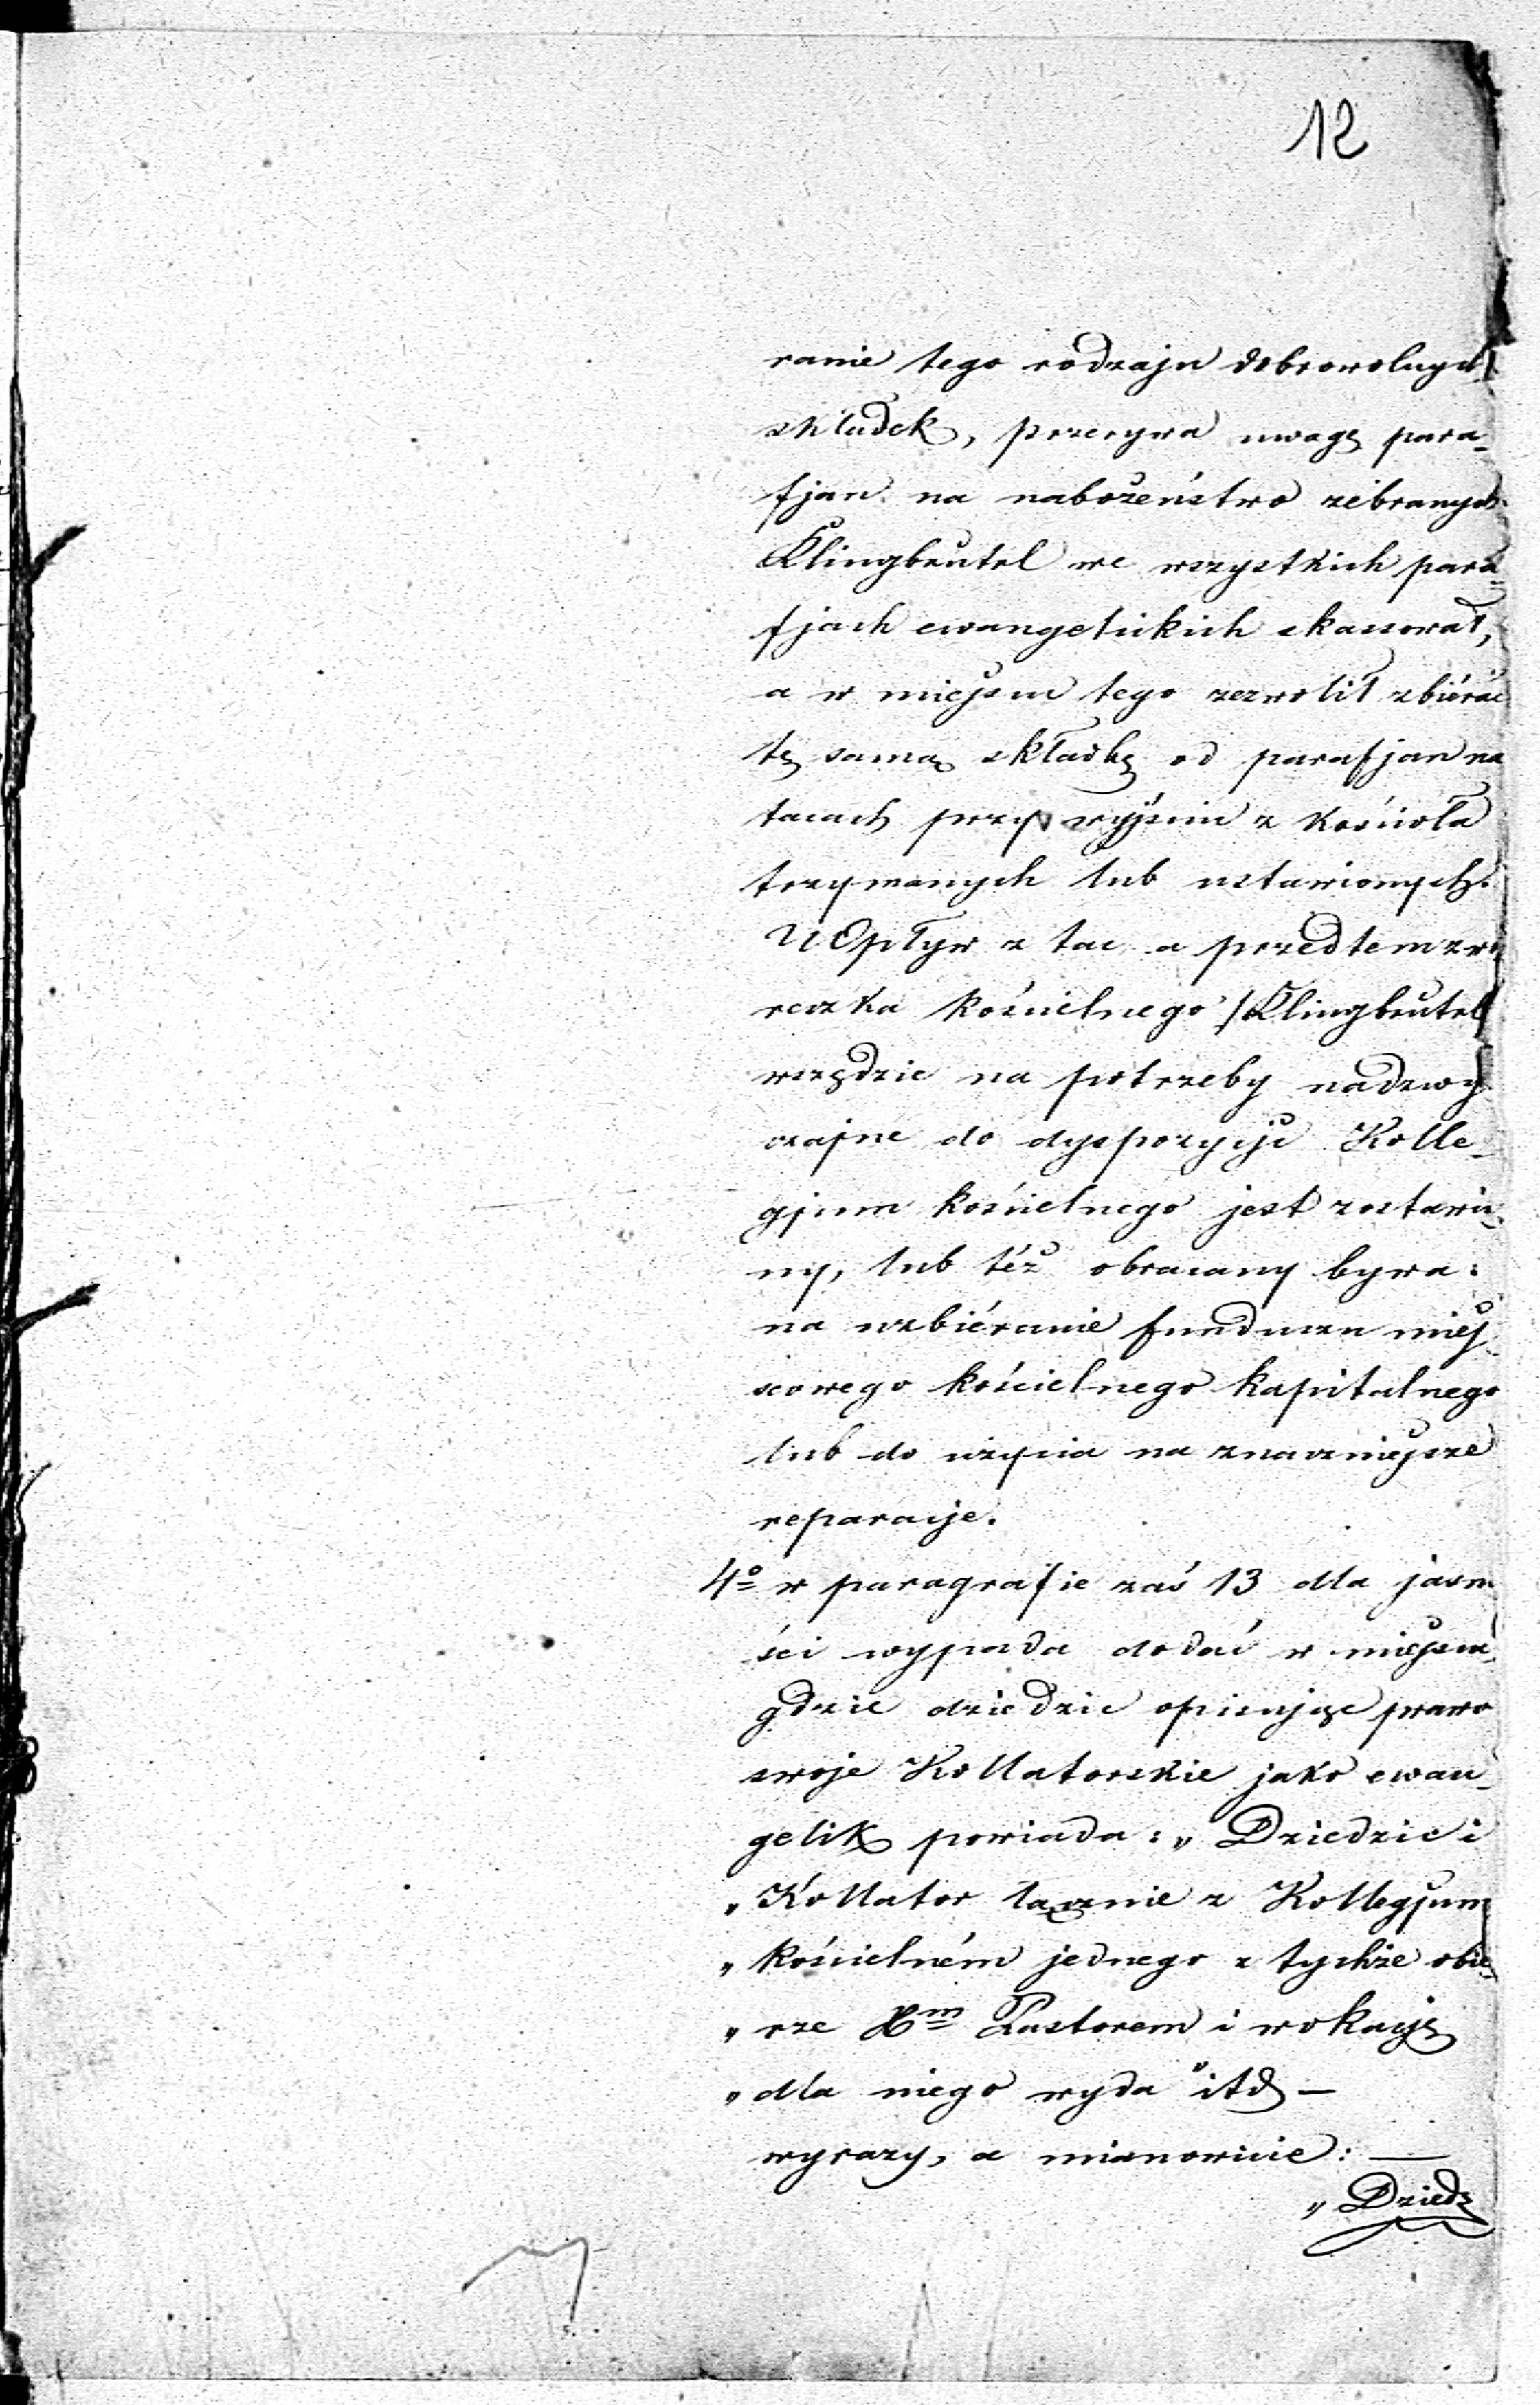 12
ranie tego rodzaju dobrowolnych
składek, przerywa uwagę para-
fjan na nabożeństwo zebranych
Klingbeutel we wszystkich para-
fjach ewangelickich skassował,
a w miejscu tego zezwolił zbiérać
tę samą składkę od parafjan na
tacach przy wyjściu z kościoła
trzymanych lub ustawionych.
Wpływ z tac a przedtem z wo
reczka kościelnego /Klingbeutel/
wszędzie na potrzeby nadzwy
czajne do dyspozycji Kolle-
gjum kościelnego jest zostawio-
ny, lub téż obracany bywa:
na uzbiéranie funduszu miej
scowego kościelnego kapitalnego
lub do użycia na znaczniejsze
reparacije.
4º w paragrafie zaś 13 dla jasno
ści wypada dodać w miejscu,
gdzie dziedzic opisując prawo
swoje Kollatorskie jako ewan-
gelik powiada: „Dziedzic i
„Kollator łącznie z Kollegjum
„kościelném jednego z tychże obie-
„rze Xm Pastorem i wokacją
„dla niego wyda" itd —
wyrazy, a mianowicie: —
„Dziedz